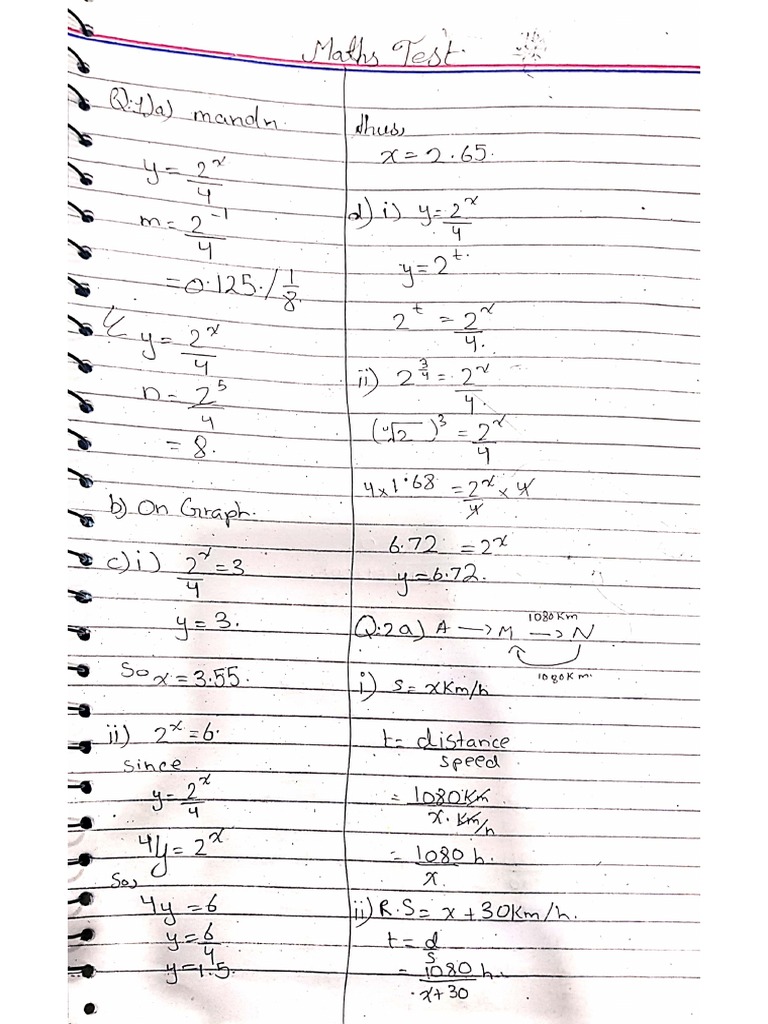 Maths Test.
Q.1)a) m and n.
y = 2^x/4
m = 2^-1/4
= 0.125 / 1/8.
y = 2^x/4
n = 2^5/4
= 8.
b) On Graph.
c) i) 2^x/4 = 3
y = 3.
So x = 3.55.
ii) 2^x = 6.
since
y = 2^x/4
4y = 2^x
So,
4y = 6
y = 6/4
y = 1.5.
thus,
x = 2.65.
d) i) y = 2^x/4
y = 2^t.
2^t = 2^x/4.
ii) 2^3/4 = 2^x/4.
(⁴√2)^3 = 2^x/4
4 x 1.68 = 2^x/4 x 4
6.72 = 2^x
y = 6.72.
1080 Km
Q.2 a) A → M → N
1080 Km.
i) s = x Km/h
t = distance/speed
= 1080 Km/x. Km/h
= 1080/x h.
ii) R.S = x + 30 Km/h.
t = d/s
= 1080/x+30 h.